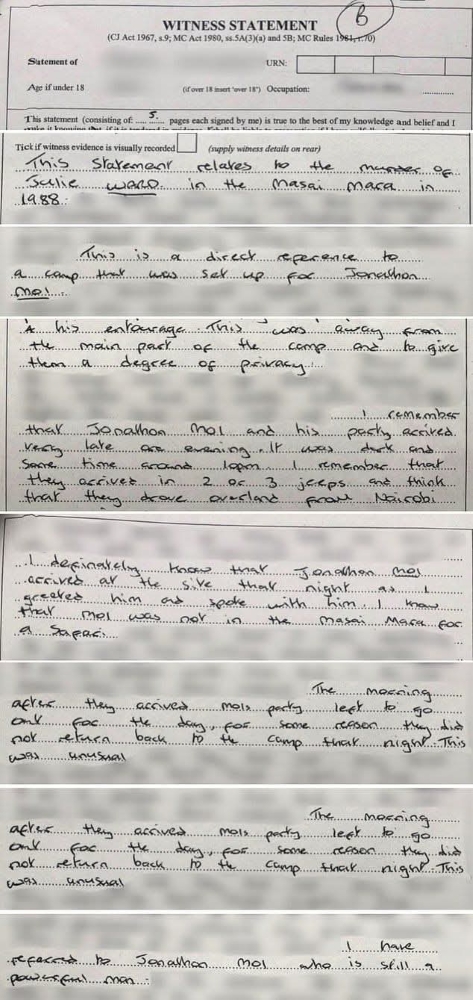 B
WITNESS STATEMENT
(CJ Act 1967, s.9; MC Act 1980, ss.5A(3)(a) and 5B; MC Rules 1981, r.70)
Statement of URN:
Age if under 18 (if over 18 insert 'over 18') Occupation:
This statement (consisting of: 5 pages each signed by me) is true to the best of my knowledge and belief and I
Tick if witness evidence is visually recorded (supply witness details on rear)
This statement relates to the murder of
Julie WARD in the Masai Mara in
1988.
This is a direct reference to
a camp that was set up for Jonathon
Moi
& his entourage. This was away from
the main part of the camp and to give
them a degree of privacy.
I remember
that Jonathon Moi and his party arrived
very late one evening. It was dark and
some time around 10pm. I remember that
they arrived in 2 or 3 jeeps and think
that they drove overland from Nairobi
I definately know that Jonathon Moi
arrived at the site that night as I
greeted him and spoke with him. I know
that Moi was not in the Masai Mara for
a Safari.
The morning
after they arrived Mois party left to go
out for the day, for some reason they did
not return back to the camp that night. This
was unusual
The morning
after they arrived Mois party left to go
out for the day, for some reason they did
not return back to the camp that night. This
was unusual
I have
referred to Jonathon Moi who is still a
powerful man.